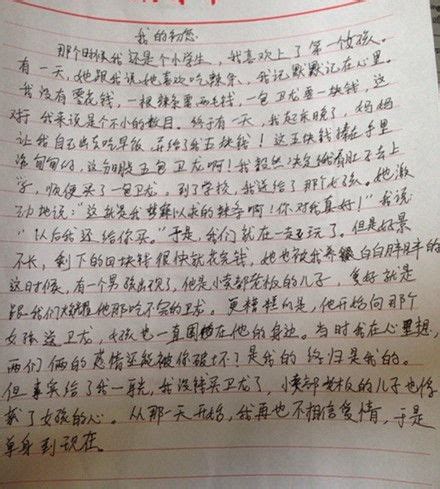 我的初恋
那个时候我还是个小学生，我喜欢上了第一个女孩。
有一天，她跟我说她喜欢吃辣条，我记默默记在心里。
我没有零花钱，一根辣条要两毛钱，一包卫龙要一块钱，这
对于我来说是个不小的数目。终于有一天，我起床晚了，妈妈
让我自己出去吃早饭，并给了我五块钱！这五块钱捧在手里
沉甸甸的，这分明是五包卫龙啊！我毅然决定饿着肚子去上
学，顺便买了一包卫龙，到了学校，我送给了那个女孩。她激
动地说：“这就是我梦寐以求的辣条啊！你对我真好！”我说：
“以后我还给你买。”于是，我们就在一起玩了。但是好景
不长，剩下的四块钱很快就花完，她也被我养得白白胖胖的
这时候，有一个男孩出现了，他是小卖部老板的儿子，爱好就是
跟我们炫耀他那吃不完的卫龙。更糟糕的是，他开始向那个
女孩送卫龙，女孩也一直围在他的身边。当时我在心里想，
我们俩的感情还能被你破坏？是我的终归是我的。
但事实给了我一耳光，我没钱买卫龙了，小卖部老板的儿子也俘
获了女孩的心。从那一天开始，我再也不相信爱情，于是
单身到现在。